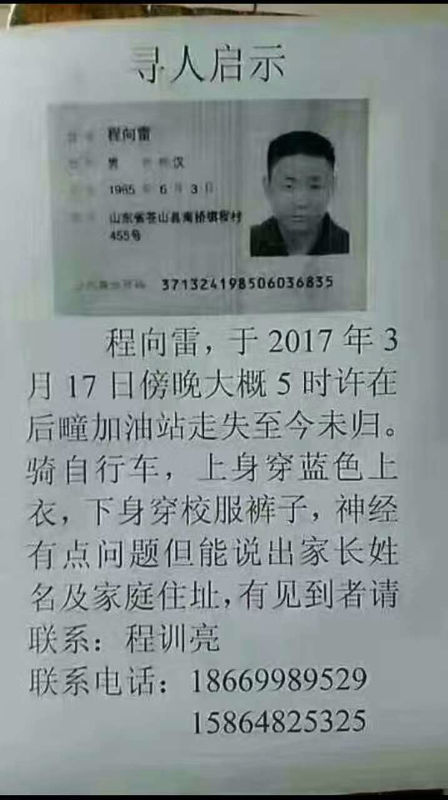 寻人启示
程向雷
男 汉
1985 年 6 月 3 日
山东省苍山县南桥镇程村
455号
371324198506036835
程向雷，于 2017 年 3
月 17 日傍晚大概 5 时许在
后疃加油站走失至今未归。
骑自行车，上身穿蓝色上
衣，下身穿校服裤子，神经
有点问题但能说出家长姓
名及家庭住址，有见到者请
联系：程训亮
联系电话：18669989529
15864825325